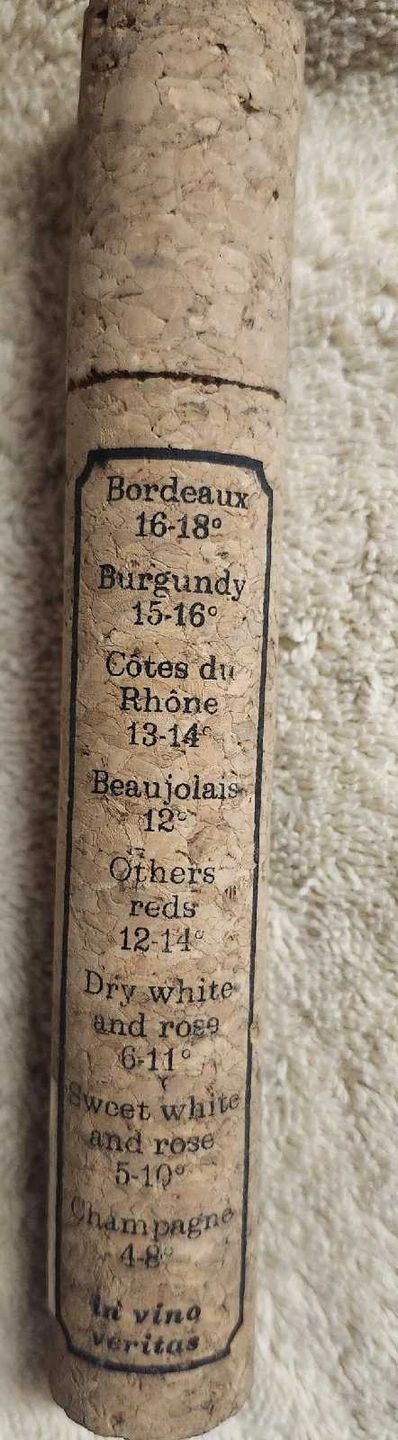 Bordeaux
16-18°
Burgundy
15-16°
Côtes du
Rhône
13-14°
Beaujolais
12°
Others
reds
12-14°
Dry white
and rose
6-11°
Sweet white
and rose
5-10°
Champagne
4-8°
in vino
veritas